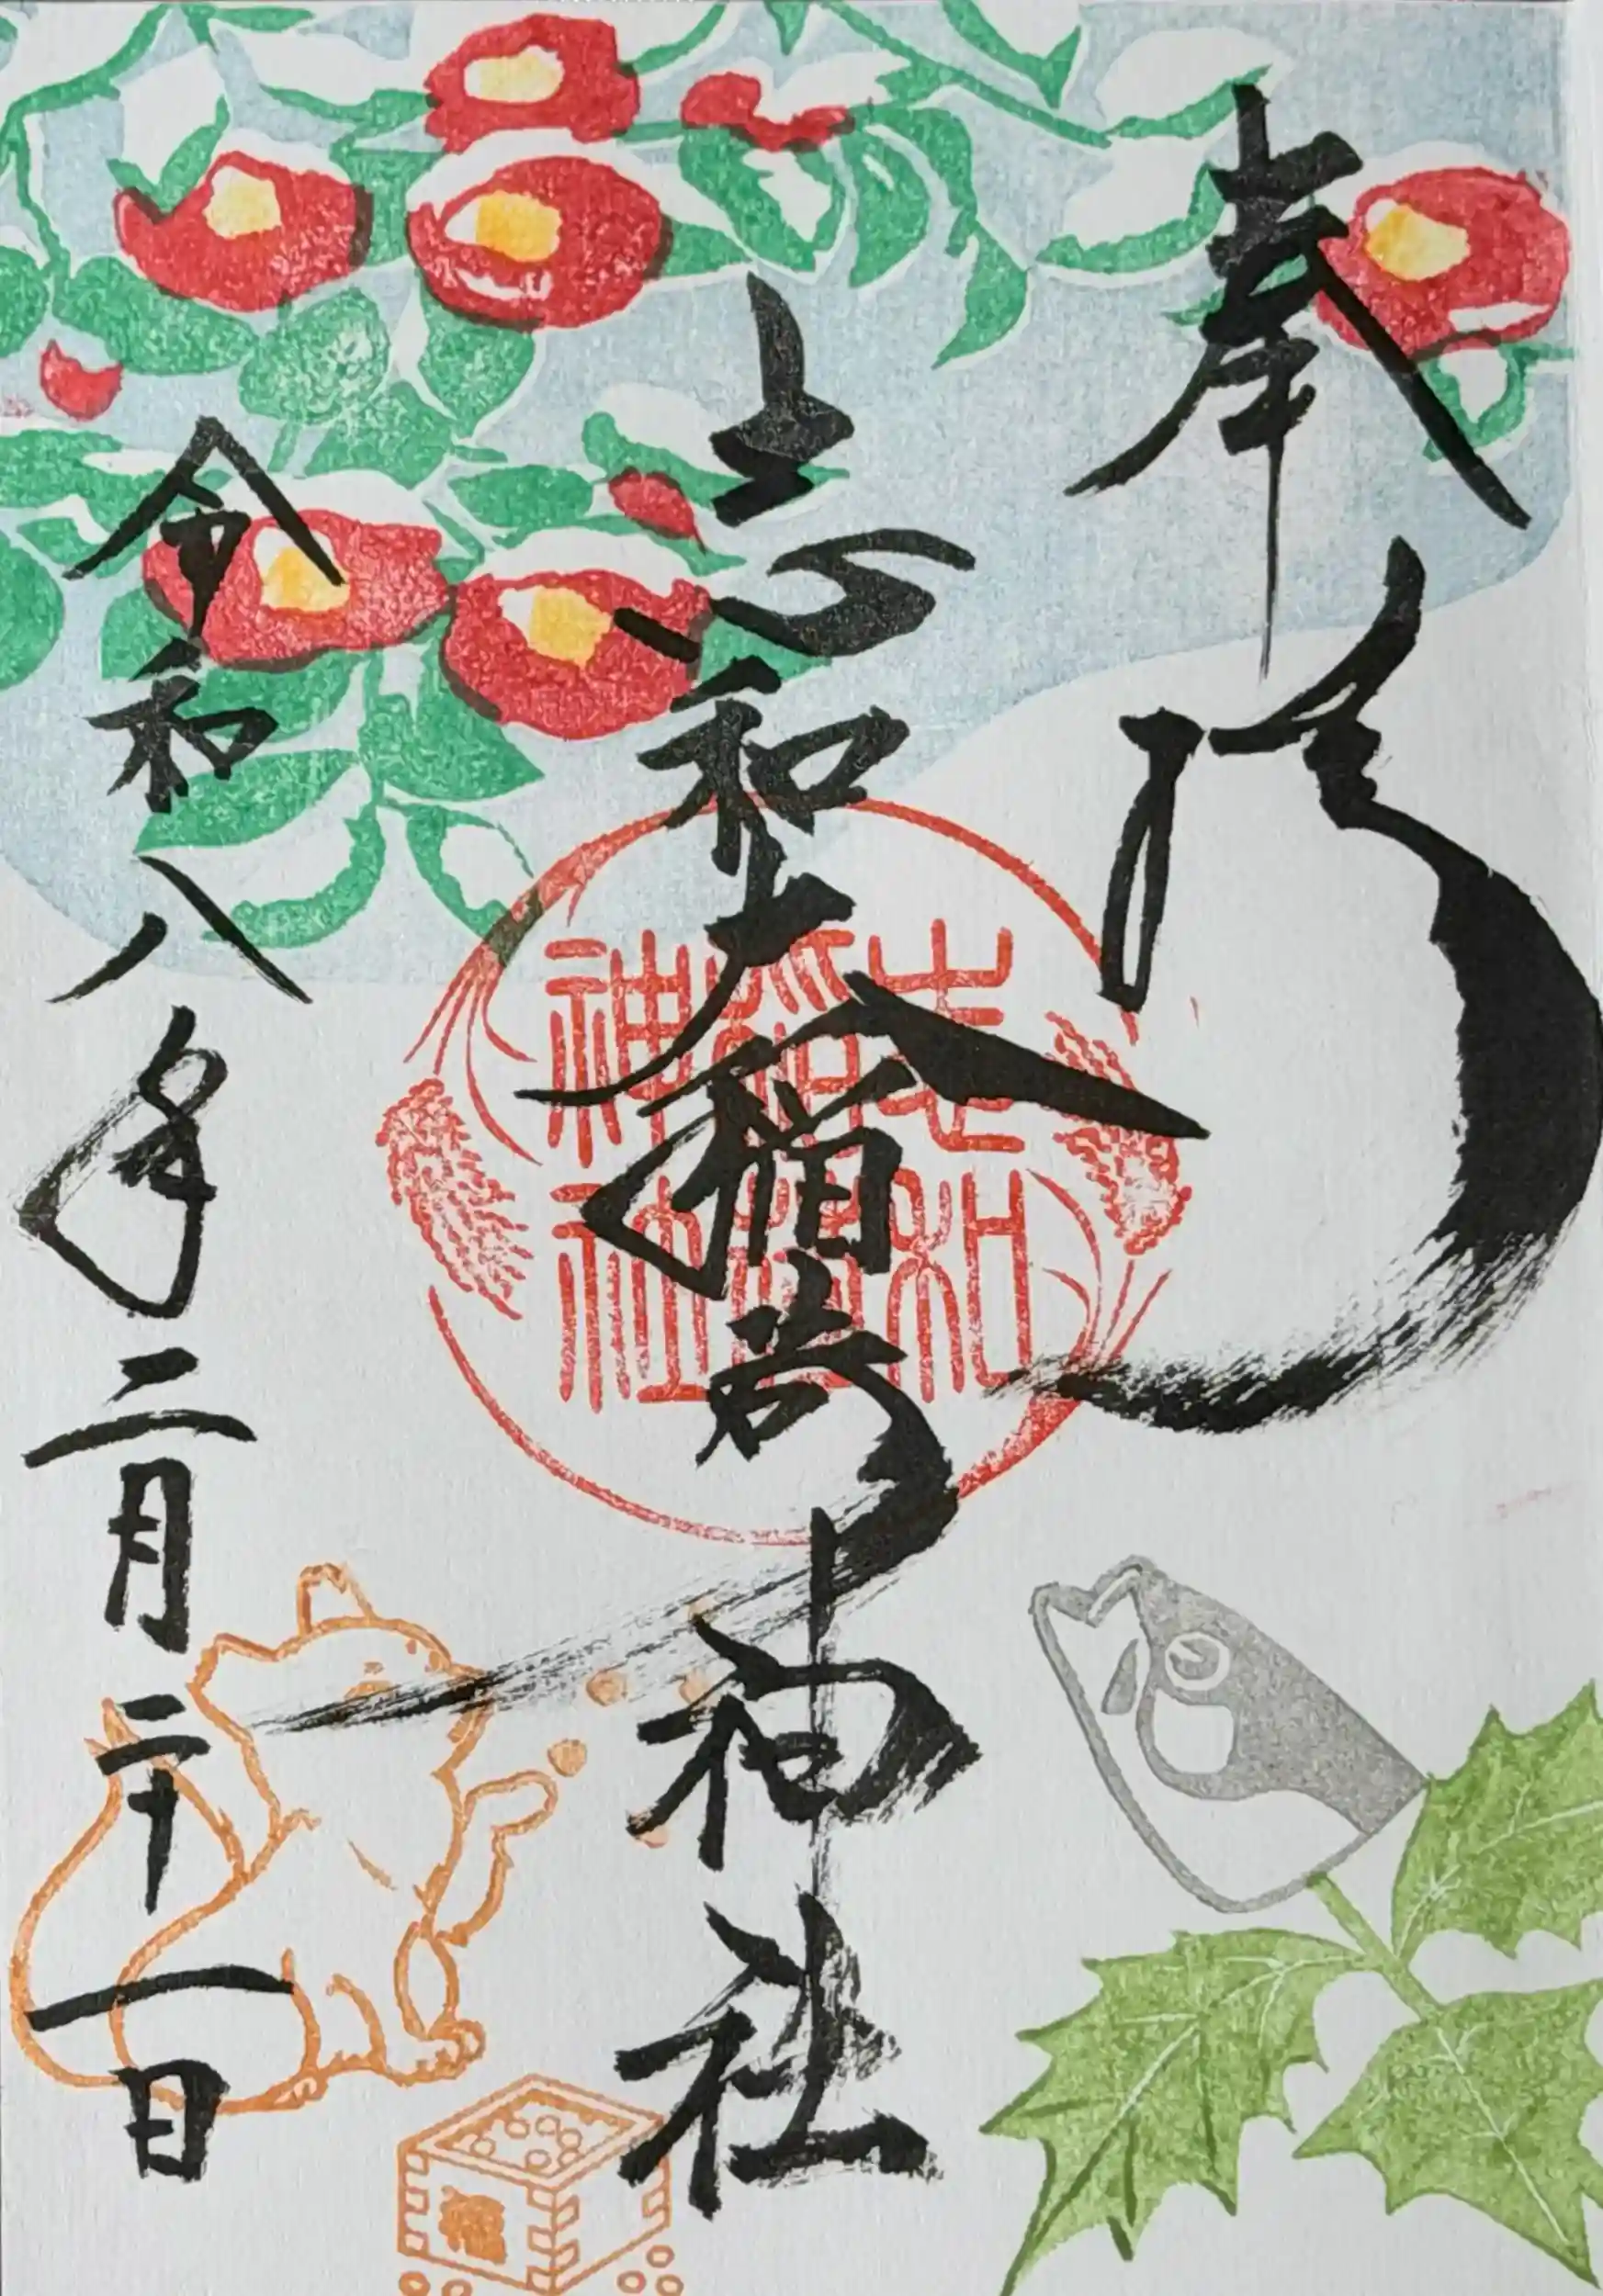 奉拝
志和大稲荷神社
志和
稲荷
神社
令和八年二月二十一日
福